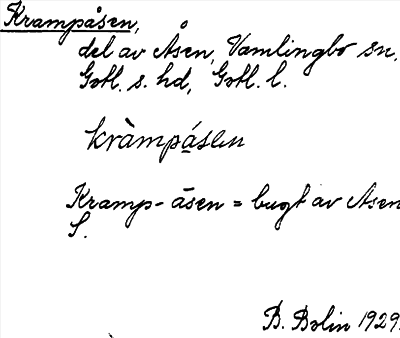 Krampåsen,
del av Åsen, Vamlingbo sn,
Gotl. s. hd, Gotl. l.
kràmpásen
Kramp-åsen = bugt av Åsen
S.
B. Bolin 1929.